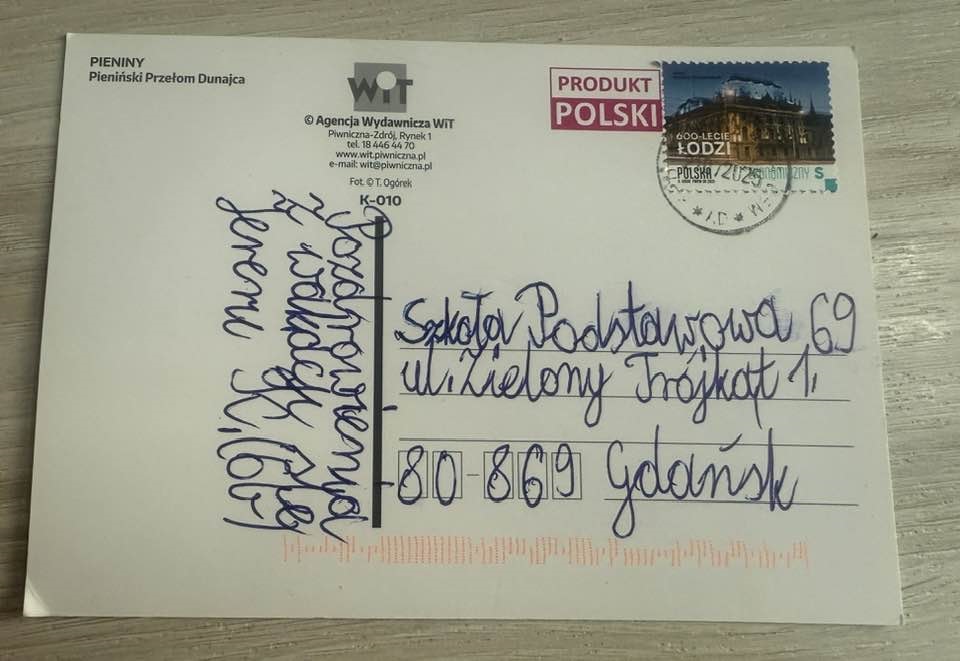 PIENINY
Pieniński Przełom Dunajca
WiT
© Agencja Wydawnicza WiT
Piwniczna-Zdrój, Rynek 1
tel. 18 446 44 70
www.wit.piwniczna.pl
e-mail: wit@piwniczna.pl
Fot. © T. Ogórek
K-010
PRODUKT
POLSKI
600-LECIE
ŁODZI
POLSKA
EKONOMICZNY S
Pozdrowienia
z wakacji śle
Jeremi K. (6b)
Szkoła Podstawowa 69
ul. Zielony Trójkąt 1,
80-869 Gdańsk